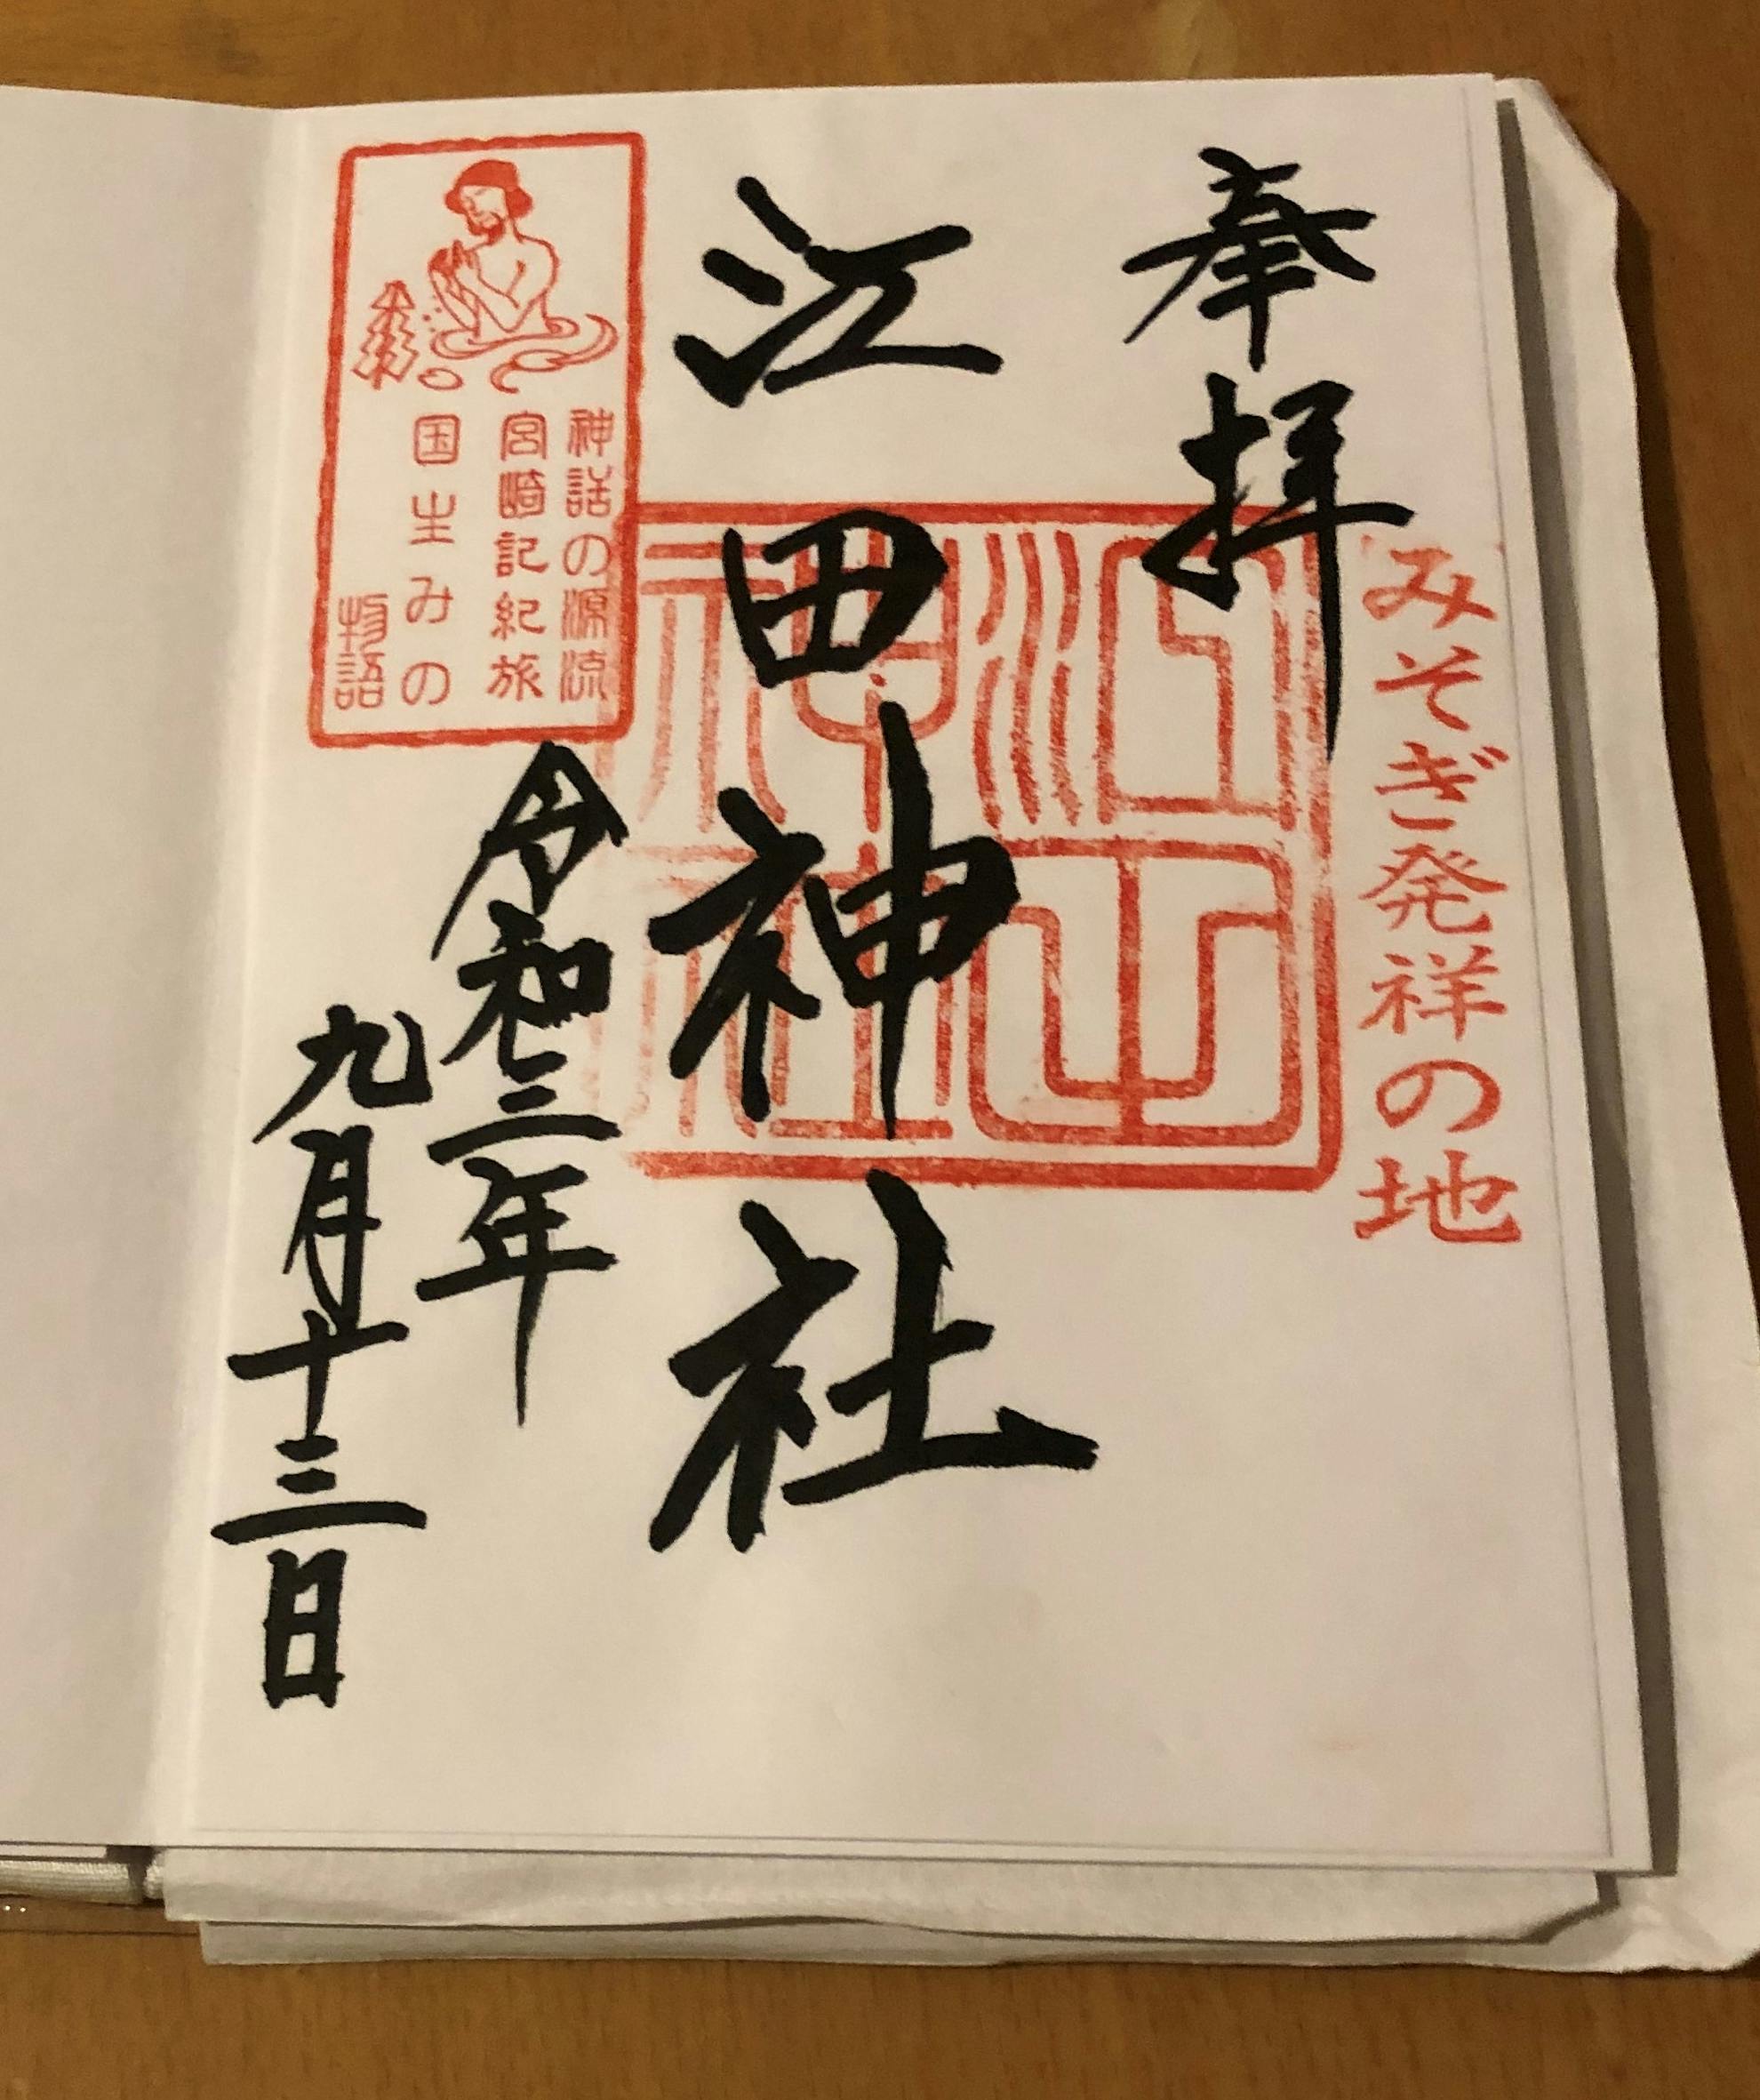 奉拝
みそぎ発祥の地
江田神社
江田神社
令和三年
九月十三日
神話の源流
宮崎記紀旅
国生みの
物語